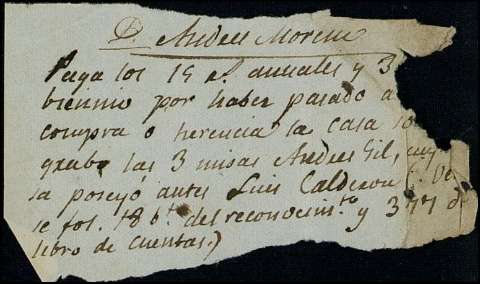 D. Andres Moreno
Paga los 15 rs. annales y 3
biennio por haber pasado a
compra o herencia la casa so
graba las 3 misas Andres Gil, cuy
la poseyó antes Luis Calderon
se fol. 18 bto. del reconocimto. y 377 d
libro de cuentas.)